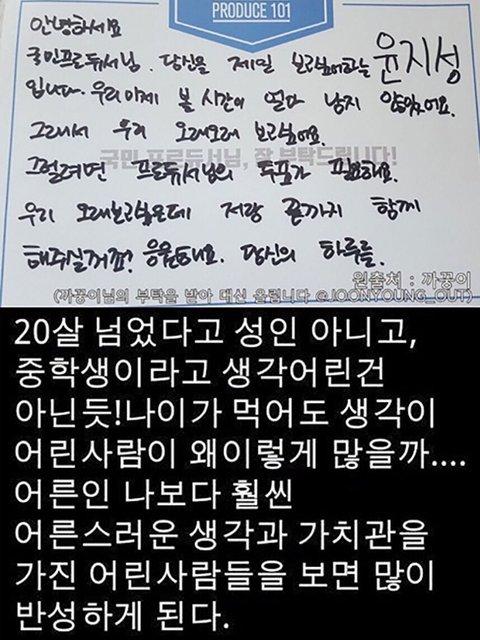 PRODUCE 101
안녕하세요
국민프로듀서님. 당신을 제일 보고싶어하는 윤지성
입니다. 우리 이제 볼 시간이 얼마 남지 않았어요.
그래서 우리 오래오래 보고싶어요.
국민 프로듀서님, 잘 부탁드립니다!
그럴려면 프로듀서님의 투표가 필요해요.
우리 오래보고싶은데 저랑 끝까지 함께
해주실꺼죠? 응원해요. 당신의 하루를.
원출처 : 까꿍이
(까꿍이님의 부탁을 받아 대신 올립니다 @JOONYOUNG_OUT)
20살 넘었다고 성인 아니고,
중학생이라고 생각어린건
아닌듯!나이가 먹어도 생각이
어린사람이 왜이렇게 많을까....
어른인 나보다 훨씬
어른스러운 생각과 가치관을
가진 어린사람들을 보면 많이
반성하게 된다.